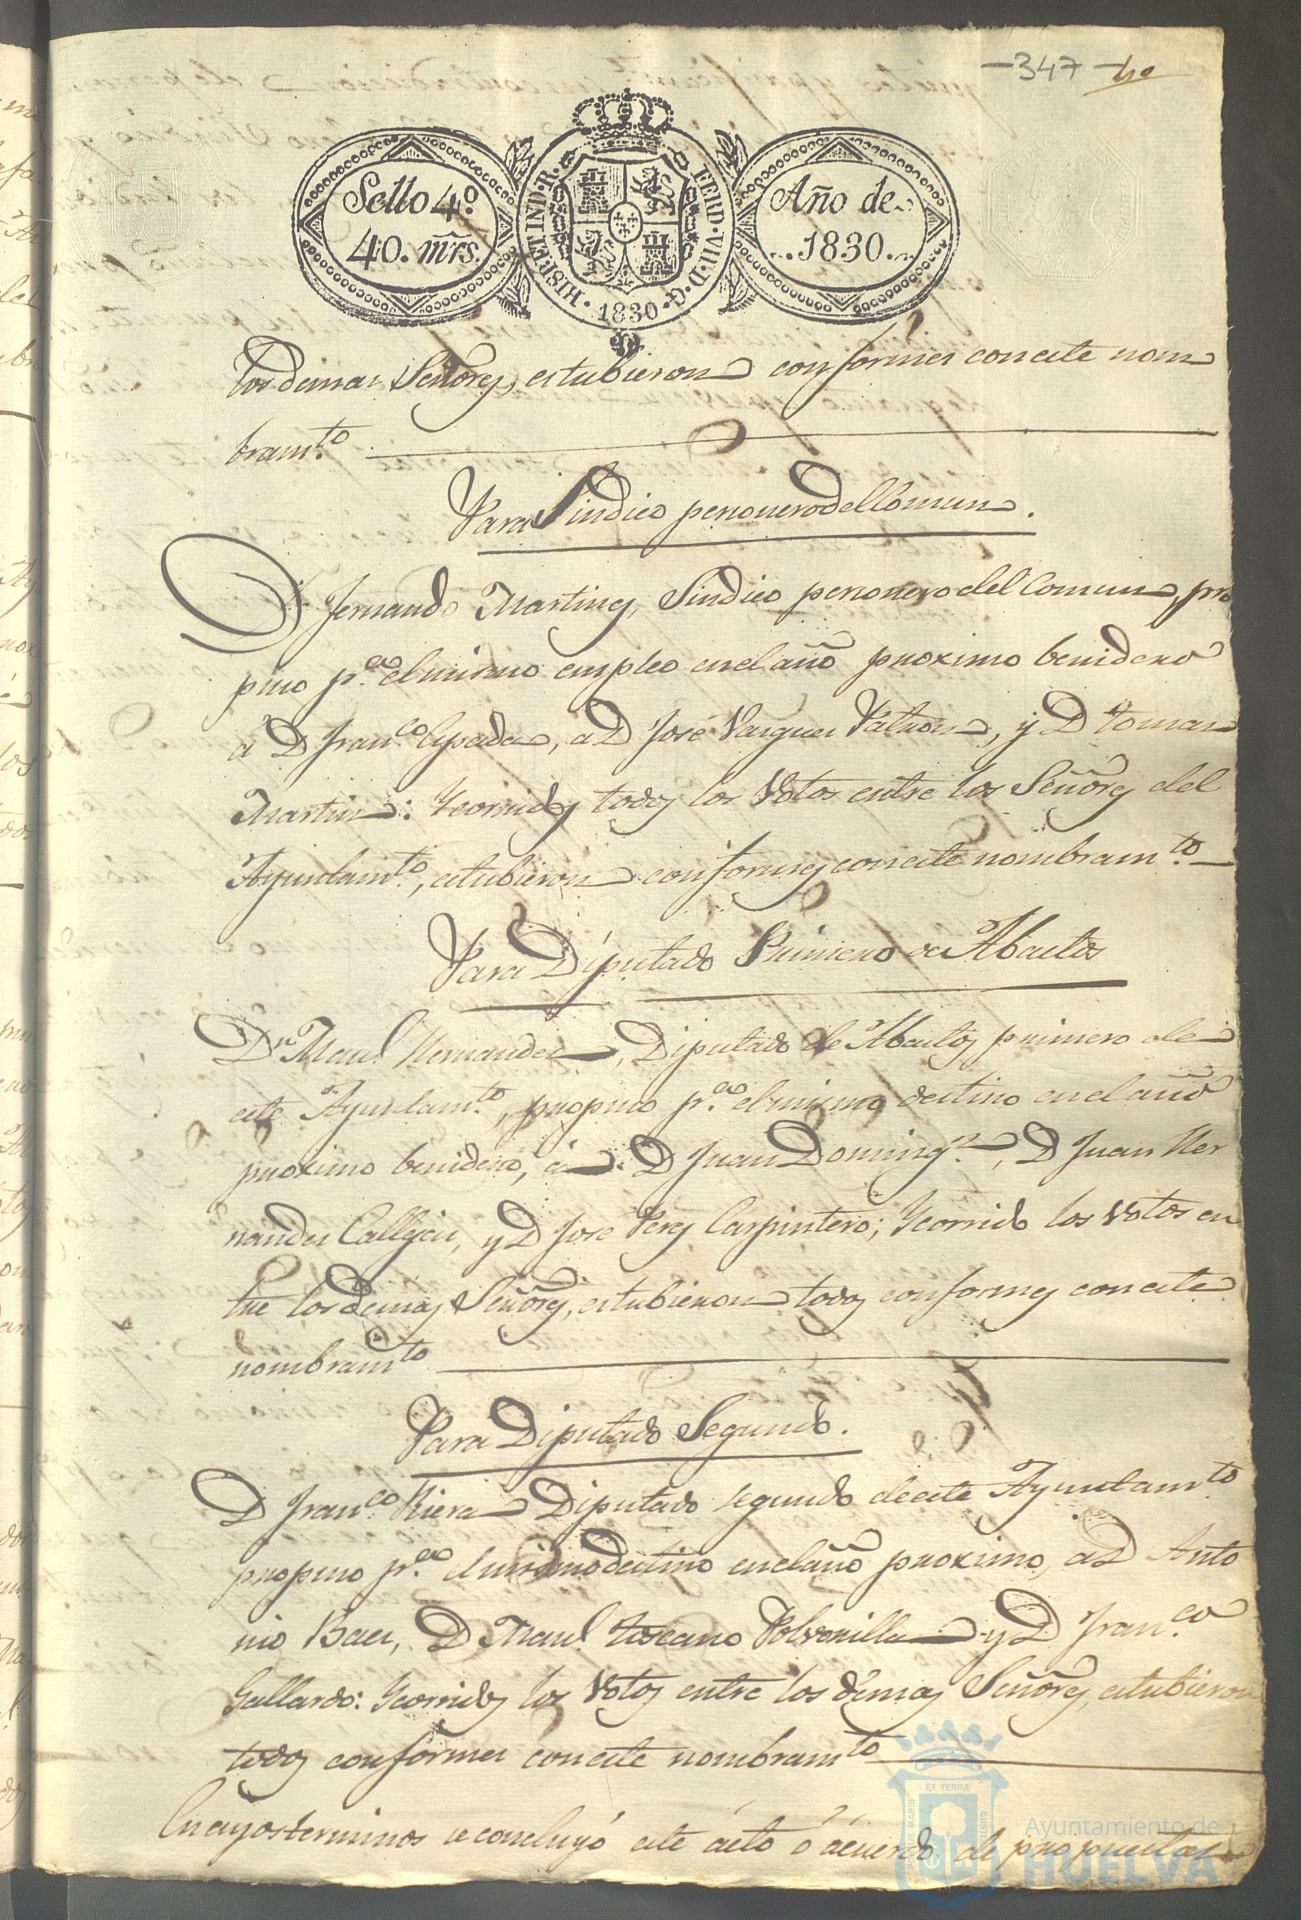 -347- 40
Sello 4º.
40. mr̃s.
HISP. ET IND. R. FERD. VII. D. G.
· 1830 ·
Año de
1830
los demas Señores, estubieron conformes con este nom
bramto.
Para Sindico personero del Comun.
D. Fernando Martines, Sindico personero del Comun, pro
puso pª. el mismo empleo en el año proximo benidero
á D Franco. Cepeda, a D José Vasques y D Tomas
Martin: Y corridos todos los Votos entre los Señores del
Ayuntamto., estubieron conformes con este nombramto.
Para Diputado Primero de Abastos
Dn Manl. Hernandes, Diputado de Abastos primero de
este Ayuntamto., propuso pª. el mismo destino en el año
proximo benidero, á D Juan Domingz., D Juan Her
nandes Calleja, y D José Peres Carpintero; Y corrido los Votos en
tre los demas Señores, estubieron todos conformes con este
nombramto
Para Diputado Segundo.
D Franco. Riera Diputado segundo de este Ayuntamto
propuso pª. el mismo destino en el año proximo, a D Anto
nio Baes, D Manl. Toscano y D Franco.
Gallardo: Y corridos los Votos entre los demas Señores, estubieron
todos conformes con este nombramto
En cuyos terminos se concluyó este acto ó acuerdo de propuestas
ET TERRÆ
MARIS
Ayuntamiento de
HUELVA